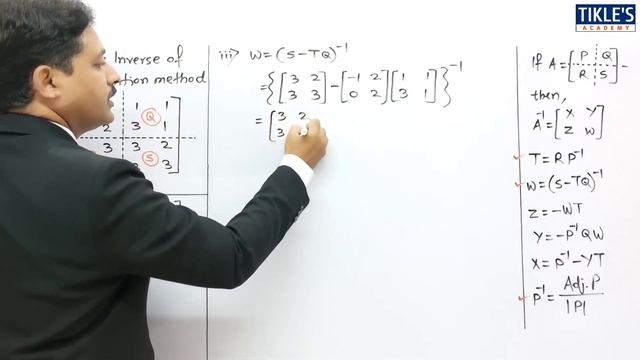 TIKLE'S
ACADEMY
Inverse of
tion method
1 1
2 3 Q 1
3 3 2
S 3
iii) W = (S-TQ)⁻¹
= { [ 3 2 ] - [ -1 2 ] [ 1 1 ] }⁻¹
[ 3 3 ] [ 0 2 ] [ 3 1 ]
= [ 3 2
3
If A = [ P Q ] -
[ R S ]
then,
A⁻¹ = [ X Y ]
[ Z W ]
T = R P⁻¹
W = (S-TQ)⁻¹
Z = -WT
Y = -P⁻¹QW
X = P⁻¹-YT
P⁻¹ = Adj. P
|P|